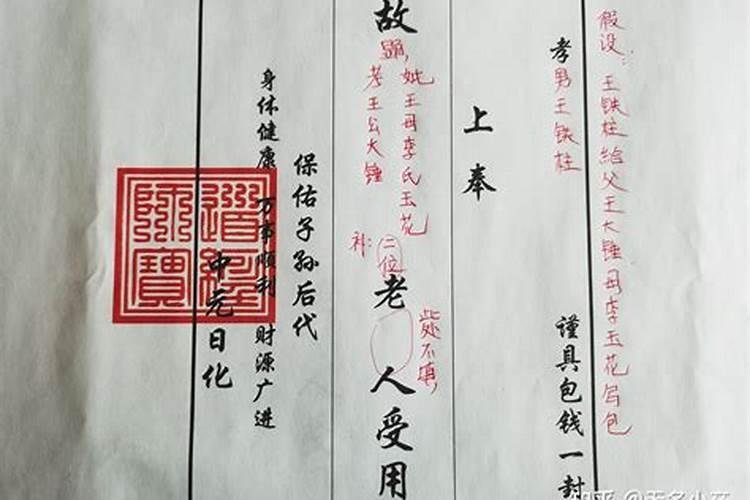 假设：王铁柱给父王大锤母李玉花写包
孝男王铁柱
谨具包钱一封
上奉
故
显，
妣王母李氏玉花
考王公大锤
补：二位
老人受用
此处不填，
保佑子孙后代
身体健康 万事顺利 财源广进
中元日化
道經師寶
知乎